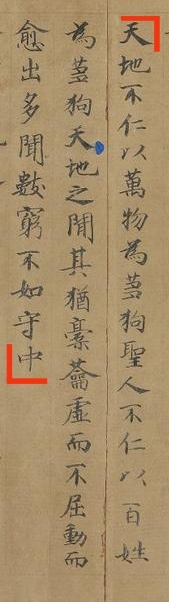 天地不仁以萬物為芻狗聖人不仁以百姓
為芻狗天地之間其猶橐蘥虛而不屈動而
愈出多聞數窮不如守中